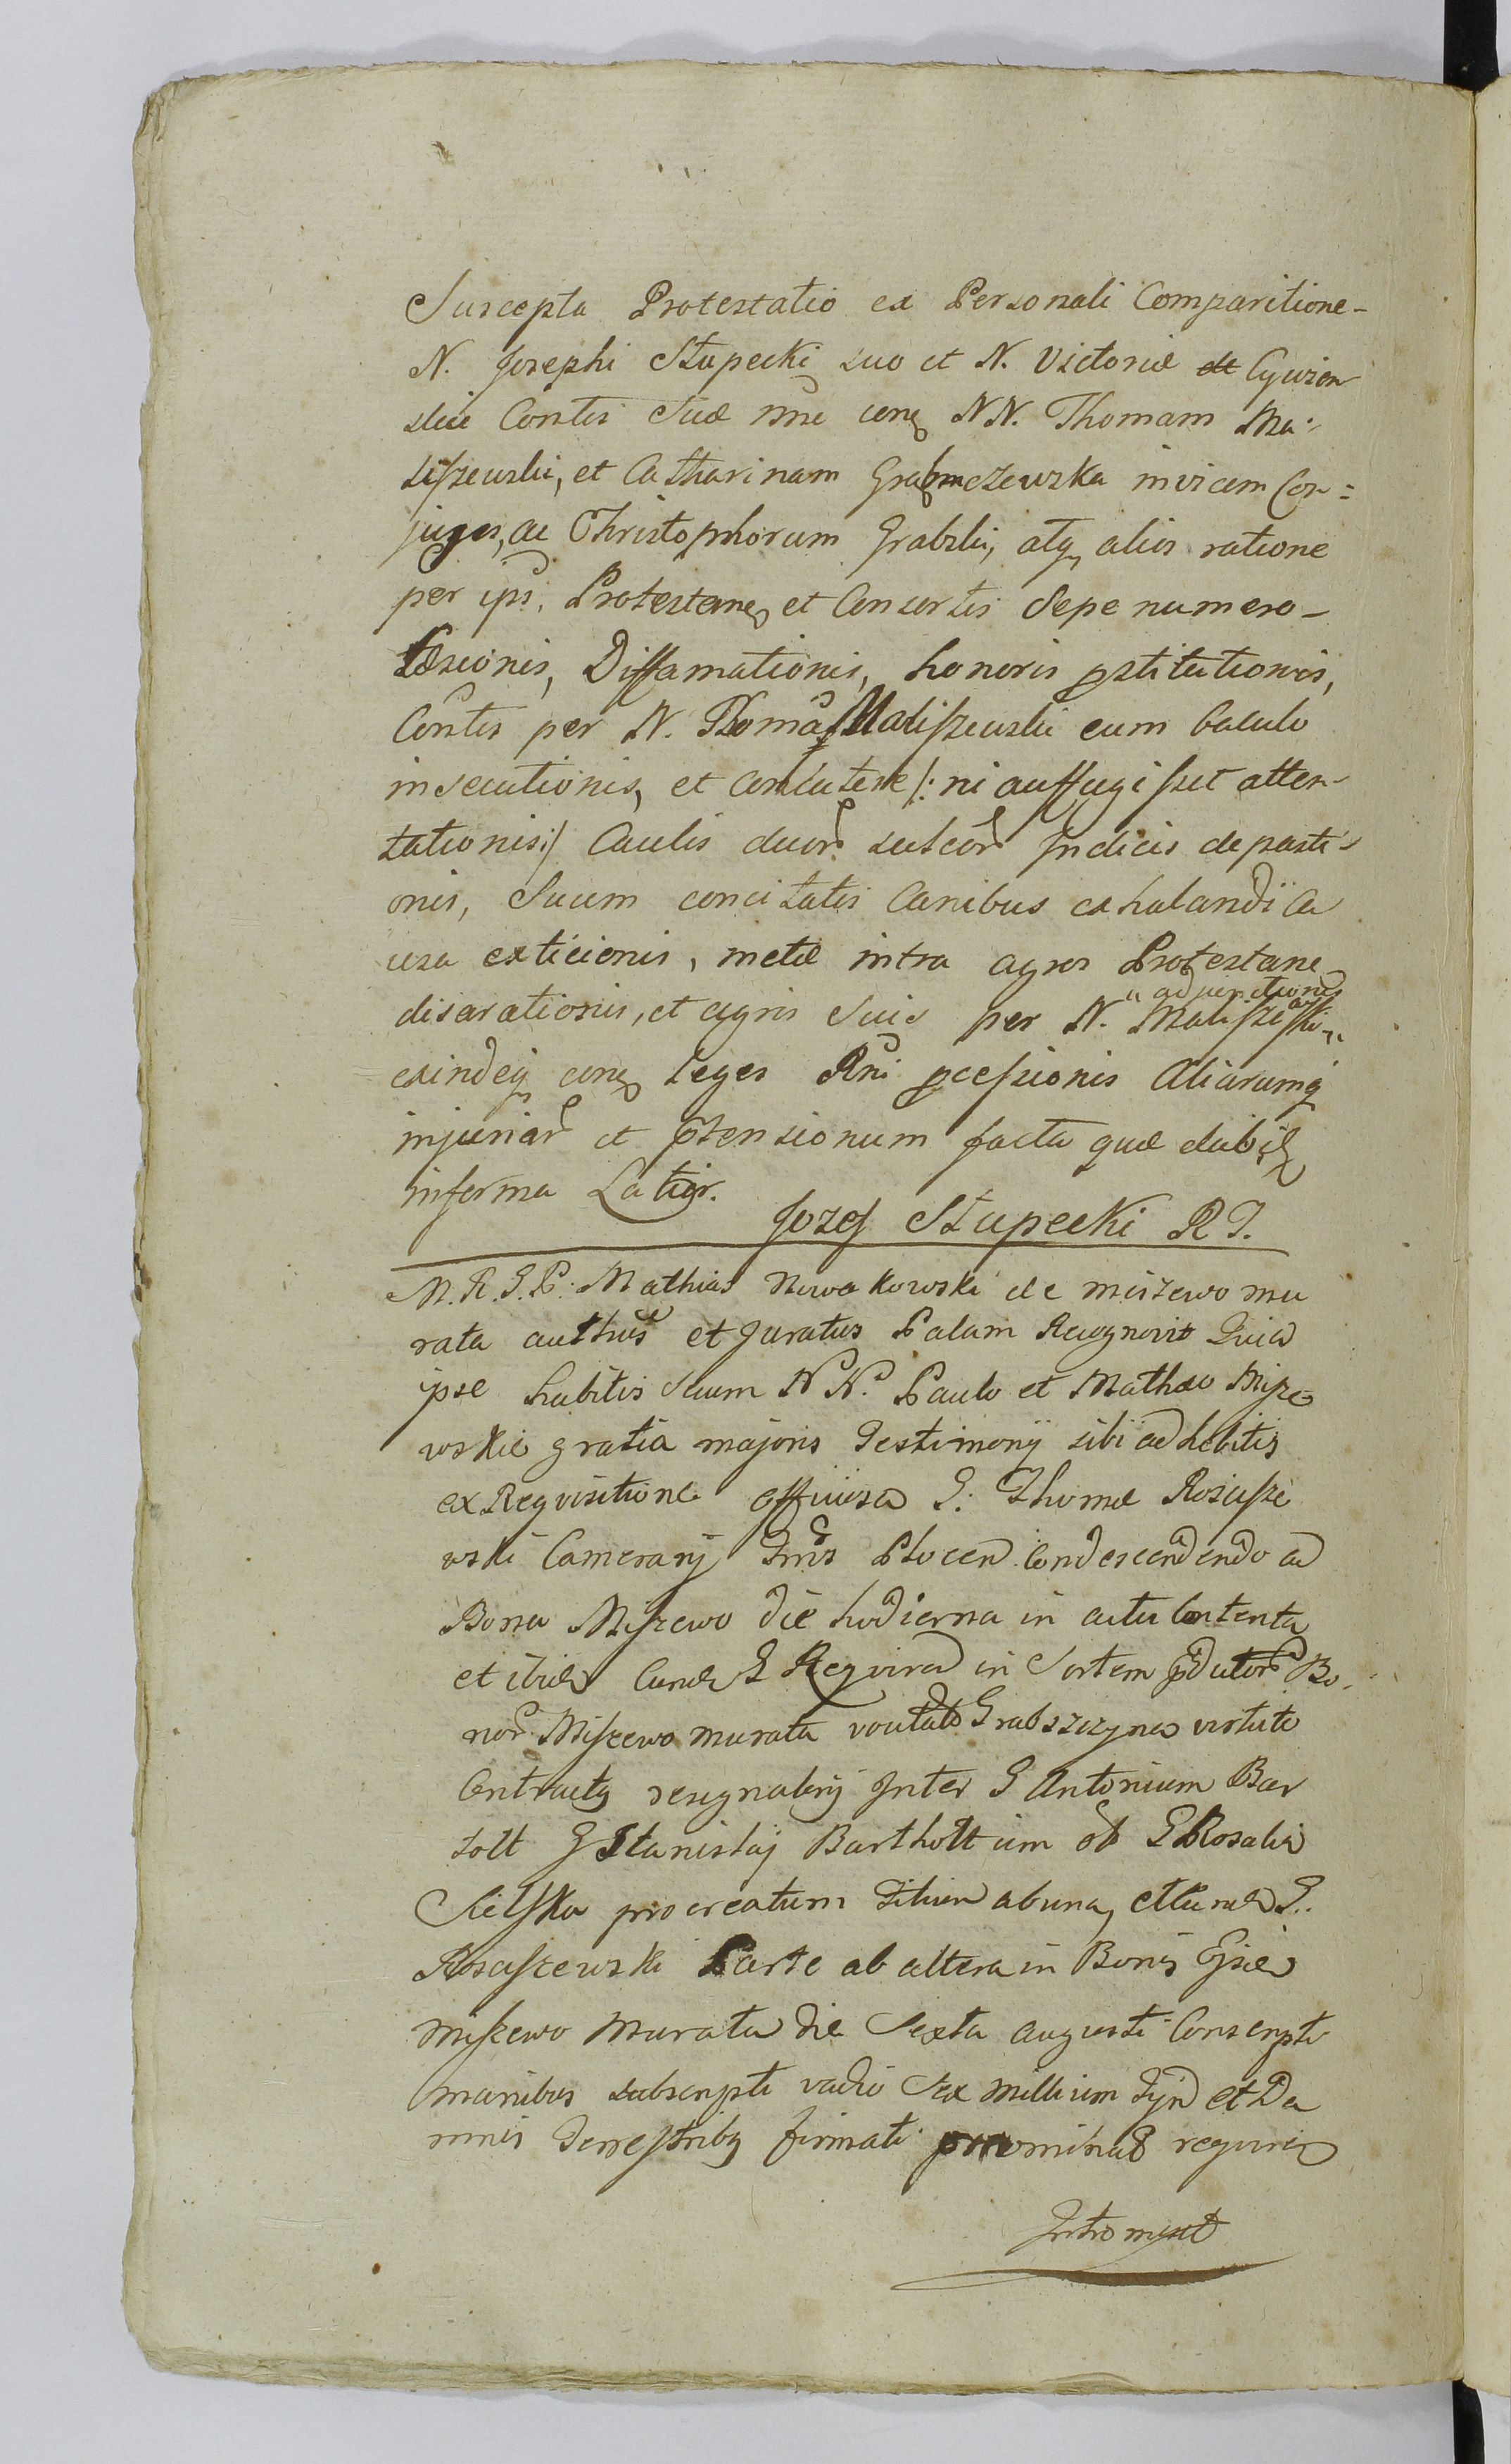 Suscepta Protestatio ex Personali Comparitione-
N. Josephi Słupecki suo et N. Victoriæ de Cywien
skie Contis Suæ nne conq NN. Thomam Ma-
liszewski, et Catharinam Grabmczewska invicem Con=
juges, ac Christophorum Grabski, atq alios ratione
per ips. Protestane et Consortis Sepe numero-
Læsionis, Diffamationis, honoris pstitutionis,
Contis per N. Thomã Maliszewski cum baculo
insecutionis, et /: ni auffugiszet atten-
tationis:/ Caulis duor sulcor Indicis depasti-
onis, Suum concitatis Canibus exhalandi Ca
usa exticionis, metæ intra agros Protestane
disarationis, et agris Suis per N. Maliszewski
exindeq conq leges Rni pcessionis Aliarumq
injuriar et ptensionum facta quæ dabi
informa Latior.
Jozef Słupecki R J.
M. R. G. P. Mathias Nowakowski de miszewo mu
rata authus et Juratus Palam Recognovit Quia
ipse habitis Secum NN. Paulo et Mathæo Misze
wskie gratia majoris Testimonij sibi adhibitis
ex Requisitione officiosa G. Thomæ Roscisze
wski Camerarij Plocen Condescendendo ad
Bona Miszewo die hodierna in actu Contenta
et ibid G Requiren in Sortem pdutor Bo-
nor Miszewo murata vocitat Grabszczyna virtute
Contractq resignatorij Inter G Antonium Bar
tolt G Stanislaj Barthott im ob G Rosalia
procreatum filium ab una, G.
Rosciszewski Parte ab altera in Bonis
miszewo Murata die Sexta augusti Conscripti
manibus subscripti vadio Sex millium fijn et Da
mnis Terrestribq firmati requiren
Intromisit